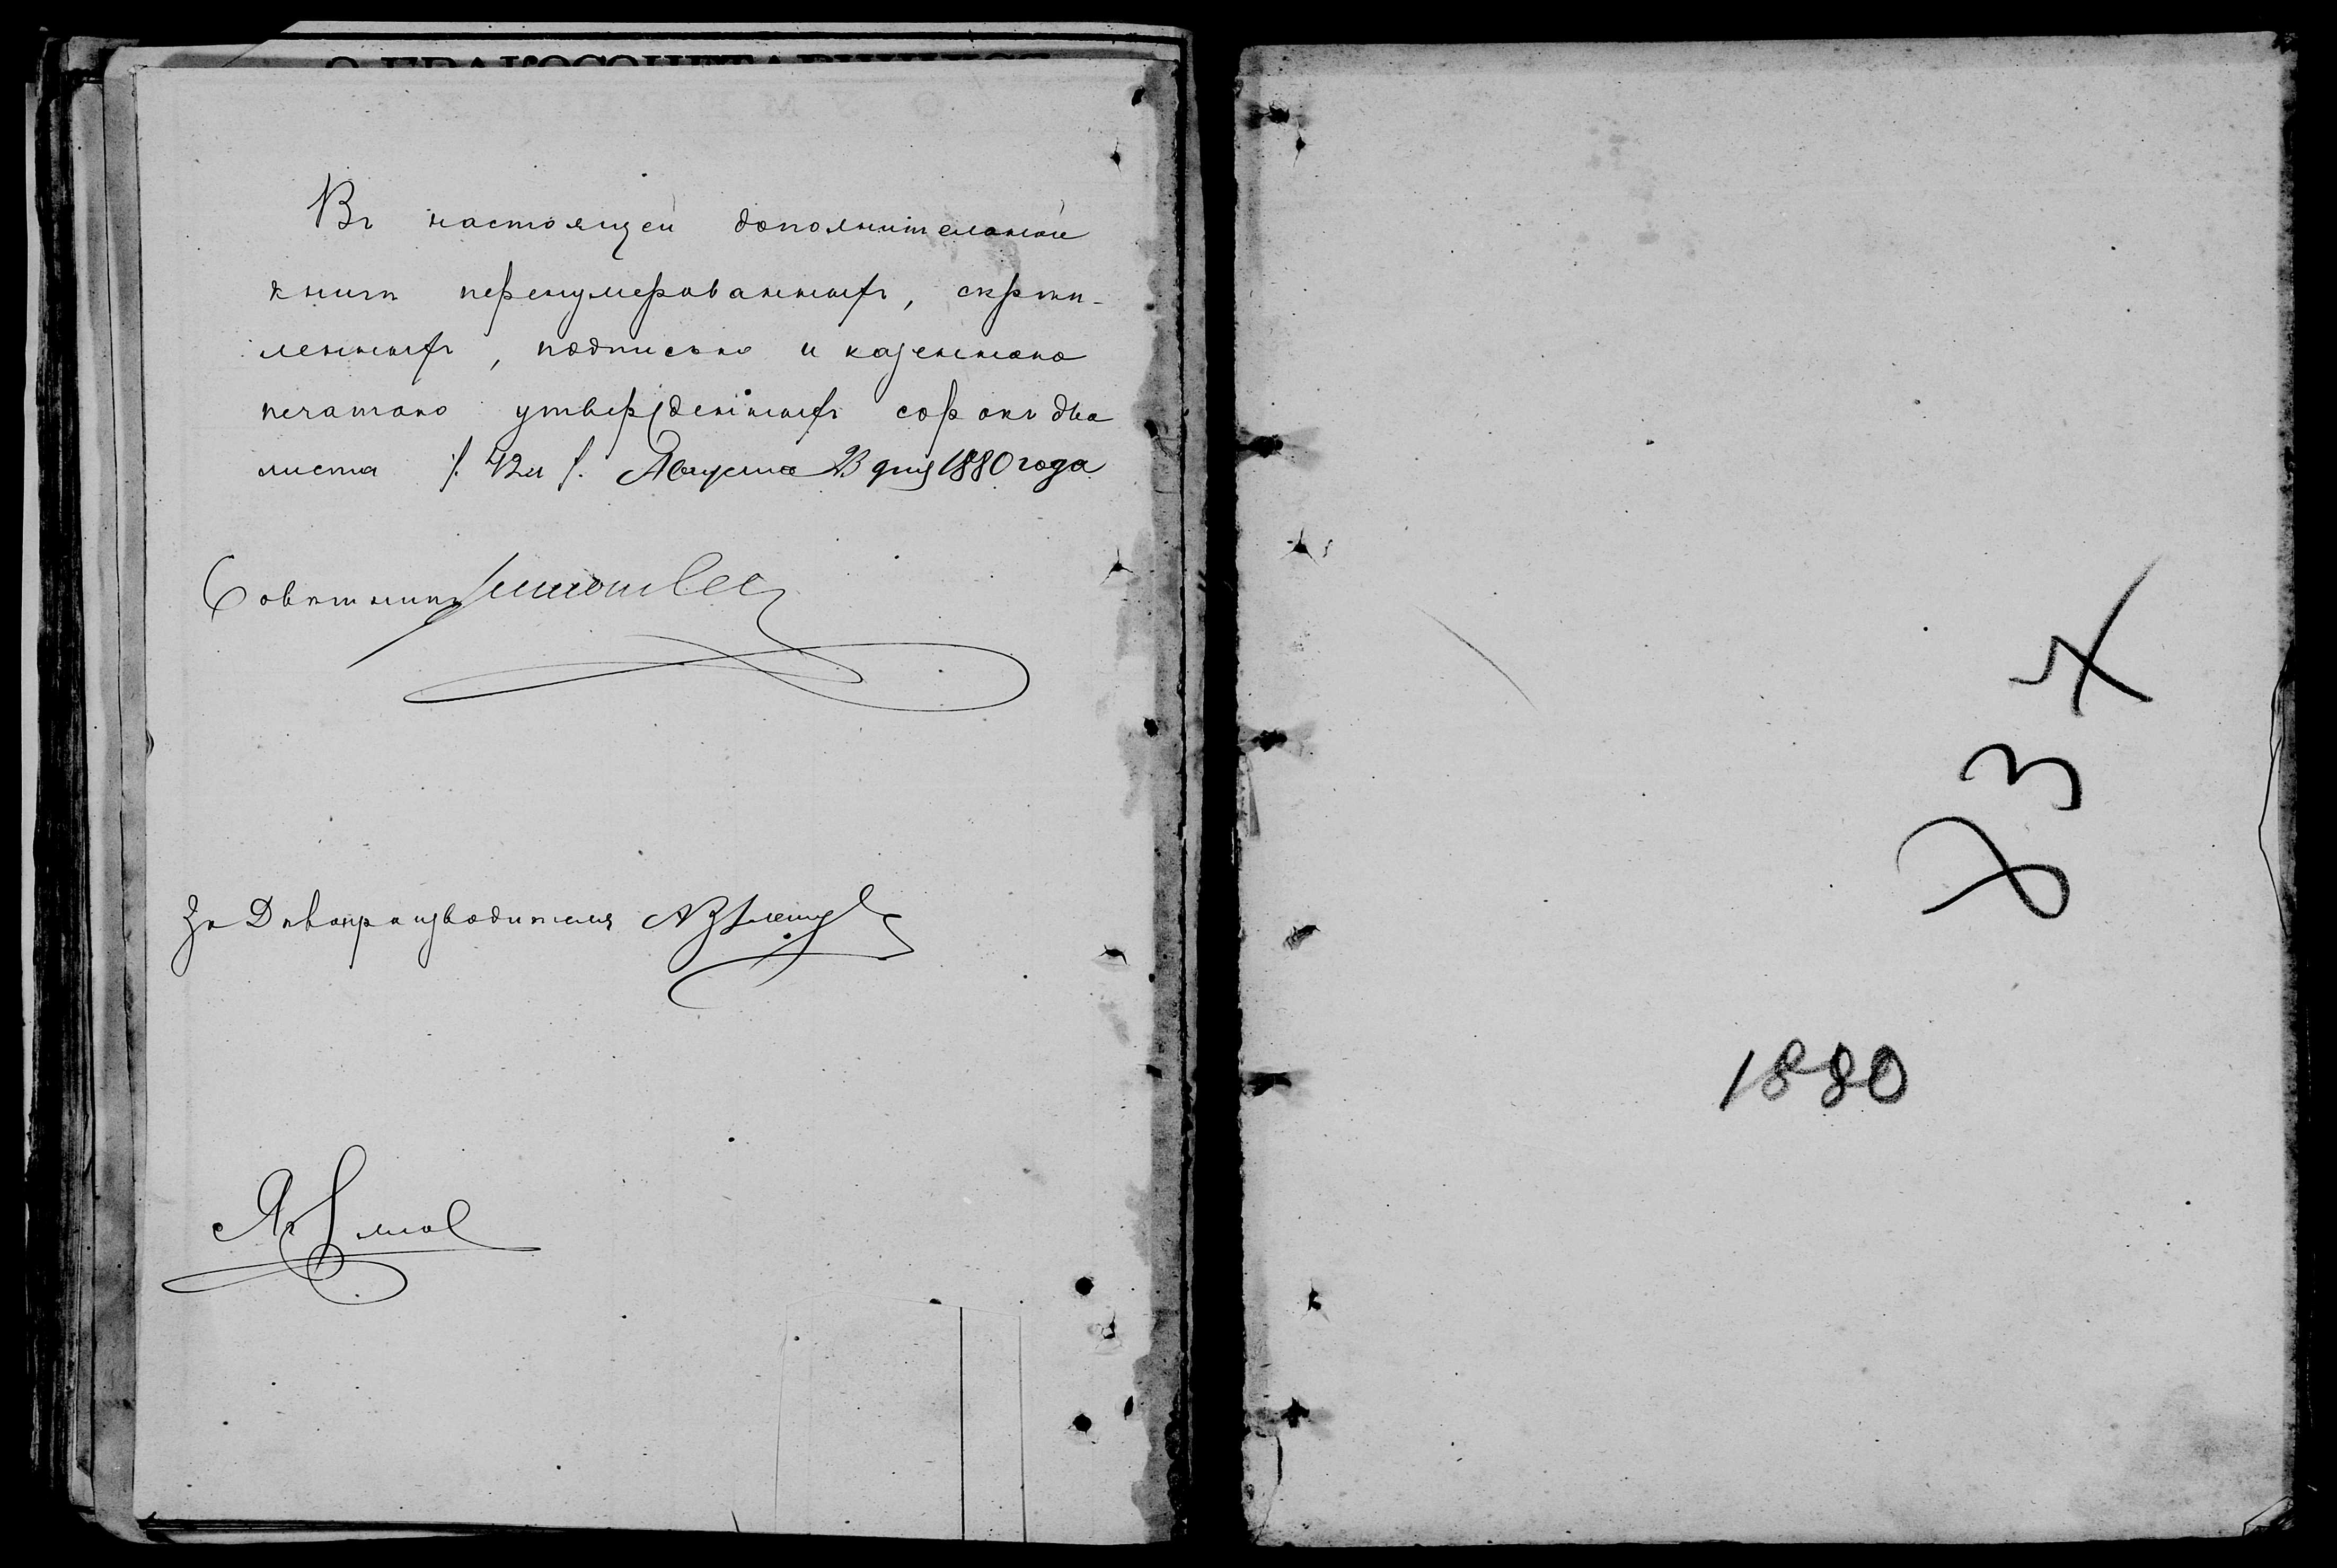 Въ настоящей дополнительной
книгѣ перенумерованныхъ, скрѣп-
ленныхъ, подписью и казенною
печатью утвержденныхъ сорокъ два
листа /. 42 л /. Августа 23 дня 1880 года
Совѣтникъ
За Дѣлопроизводителя
234
1880